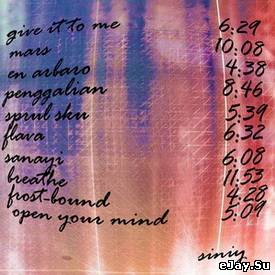 give it to me 6:29
mars 10:08
en arbaro 4:38
penggalian 8:46
sprul sku 5:39
flava 6:32
sanayi 6:08
breathe 11:53
frost-bound 4:28
open your mind 5:09
siniy
eJay.Su